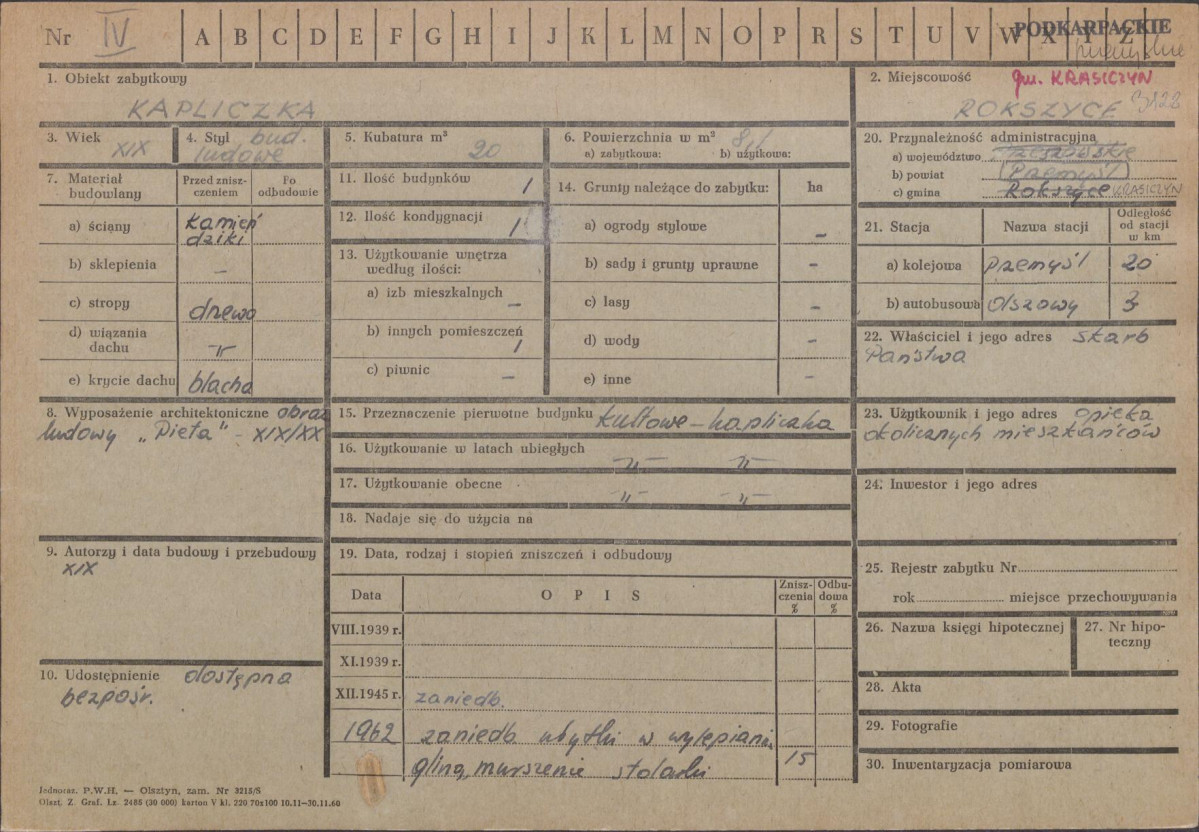 Nr IV A B C D E F G H I J K L M N O P R S T U V W X Y Z
PODKARPACKIE
1. Obiekt zabytkowy
KAPLICZKA
2. Miejscowość
gm. KRASICZYN
ROKSZYCE 3122
3. Wiek
XIX
4. Styl bud.
ludowe
5. Kubatura m³
20
6. Powierzchnia w m²
a) zabytkowa: b) użytkowa:
20. Przynależność administracyjna
a) województwo rzeszowskie
b) powiat Przemyśl
c) gmina Rokszyce KRASICZYN
7. Materiał budowlany
Przed zniszczeniem
Po odbudowie
a) ściany kamień dziki
b) sklepienia –
c) stropy drewo
d) wiązania dachu -„-
e) krycie dachu blacha
11. Ilość budynków 1
12. Ilość kondygnacji 1
13. Użytkowanie wnętrza według ilości:
a) izb mieszkalnych –
b) innych pomieszczeń 1
c) piwnic –
14. Grunty należące do zabytku: ha
a) ogrody stylowe –
b) sady i grunty uprawne –
c) lasy –
d) wody –
e) inne –
21. Stacja Nazwa stacji Odległość od stacji w km
a) kolejowa Przemyśl 20
b) autobusowa Olszowy 3
22. Właściciel i jego adres Skarb
Państwa
8. Wyposażenie architektoniczne obraz
ludowy „Pieta" - XIX/XX
15. Przeznaczenie pierwotne budynku kultowe - kapliczka
16. Użytkowanie w latach ubiegłych -„- -„-
17. Użytkowanie obecne -„- -„-
18. Nadaje się do użycia na
23. Użytkownik i jego adres opieka
okolicznych mieszkańców
24. Inwestor i jego adres
9. Autorzy i data budowy i przebudowy
XIX
10. Udostępnienie dostępna
bezpośr.
19. Data, rodzaj i stopień zniszczeń i odbudowy
Data O P I S Zniszczenia % Odbudowa %
VIII.1939 r.
XI.1939 r.
XII.1945 r. zaniedb.
1962 zaniedb. ubytki w wylepianiu
gliną, murszenie stolarki 15
25. Rejestr zabytku Nr
rok miejsce przechowywania
26. Nazwa księgi hipotecznej
27. Nr hipoteczny
28. Akta
29. Fotografie
30. Inwentaryzacja pomiarowa
Jednoraz. P.W.H. — Olsztyn, zam. Nr 3215/S
Olszt. Z. Graf. Lz. 2485 (30 000) karton V kl. 220 70x100 10.11—30.11.60